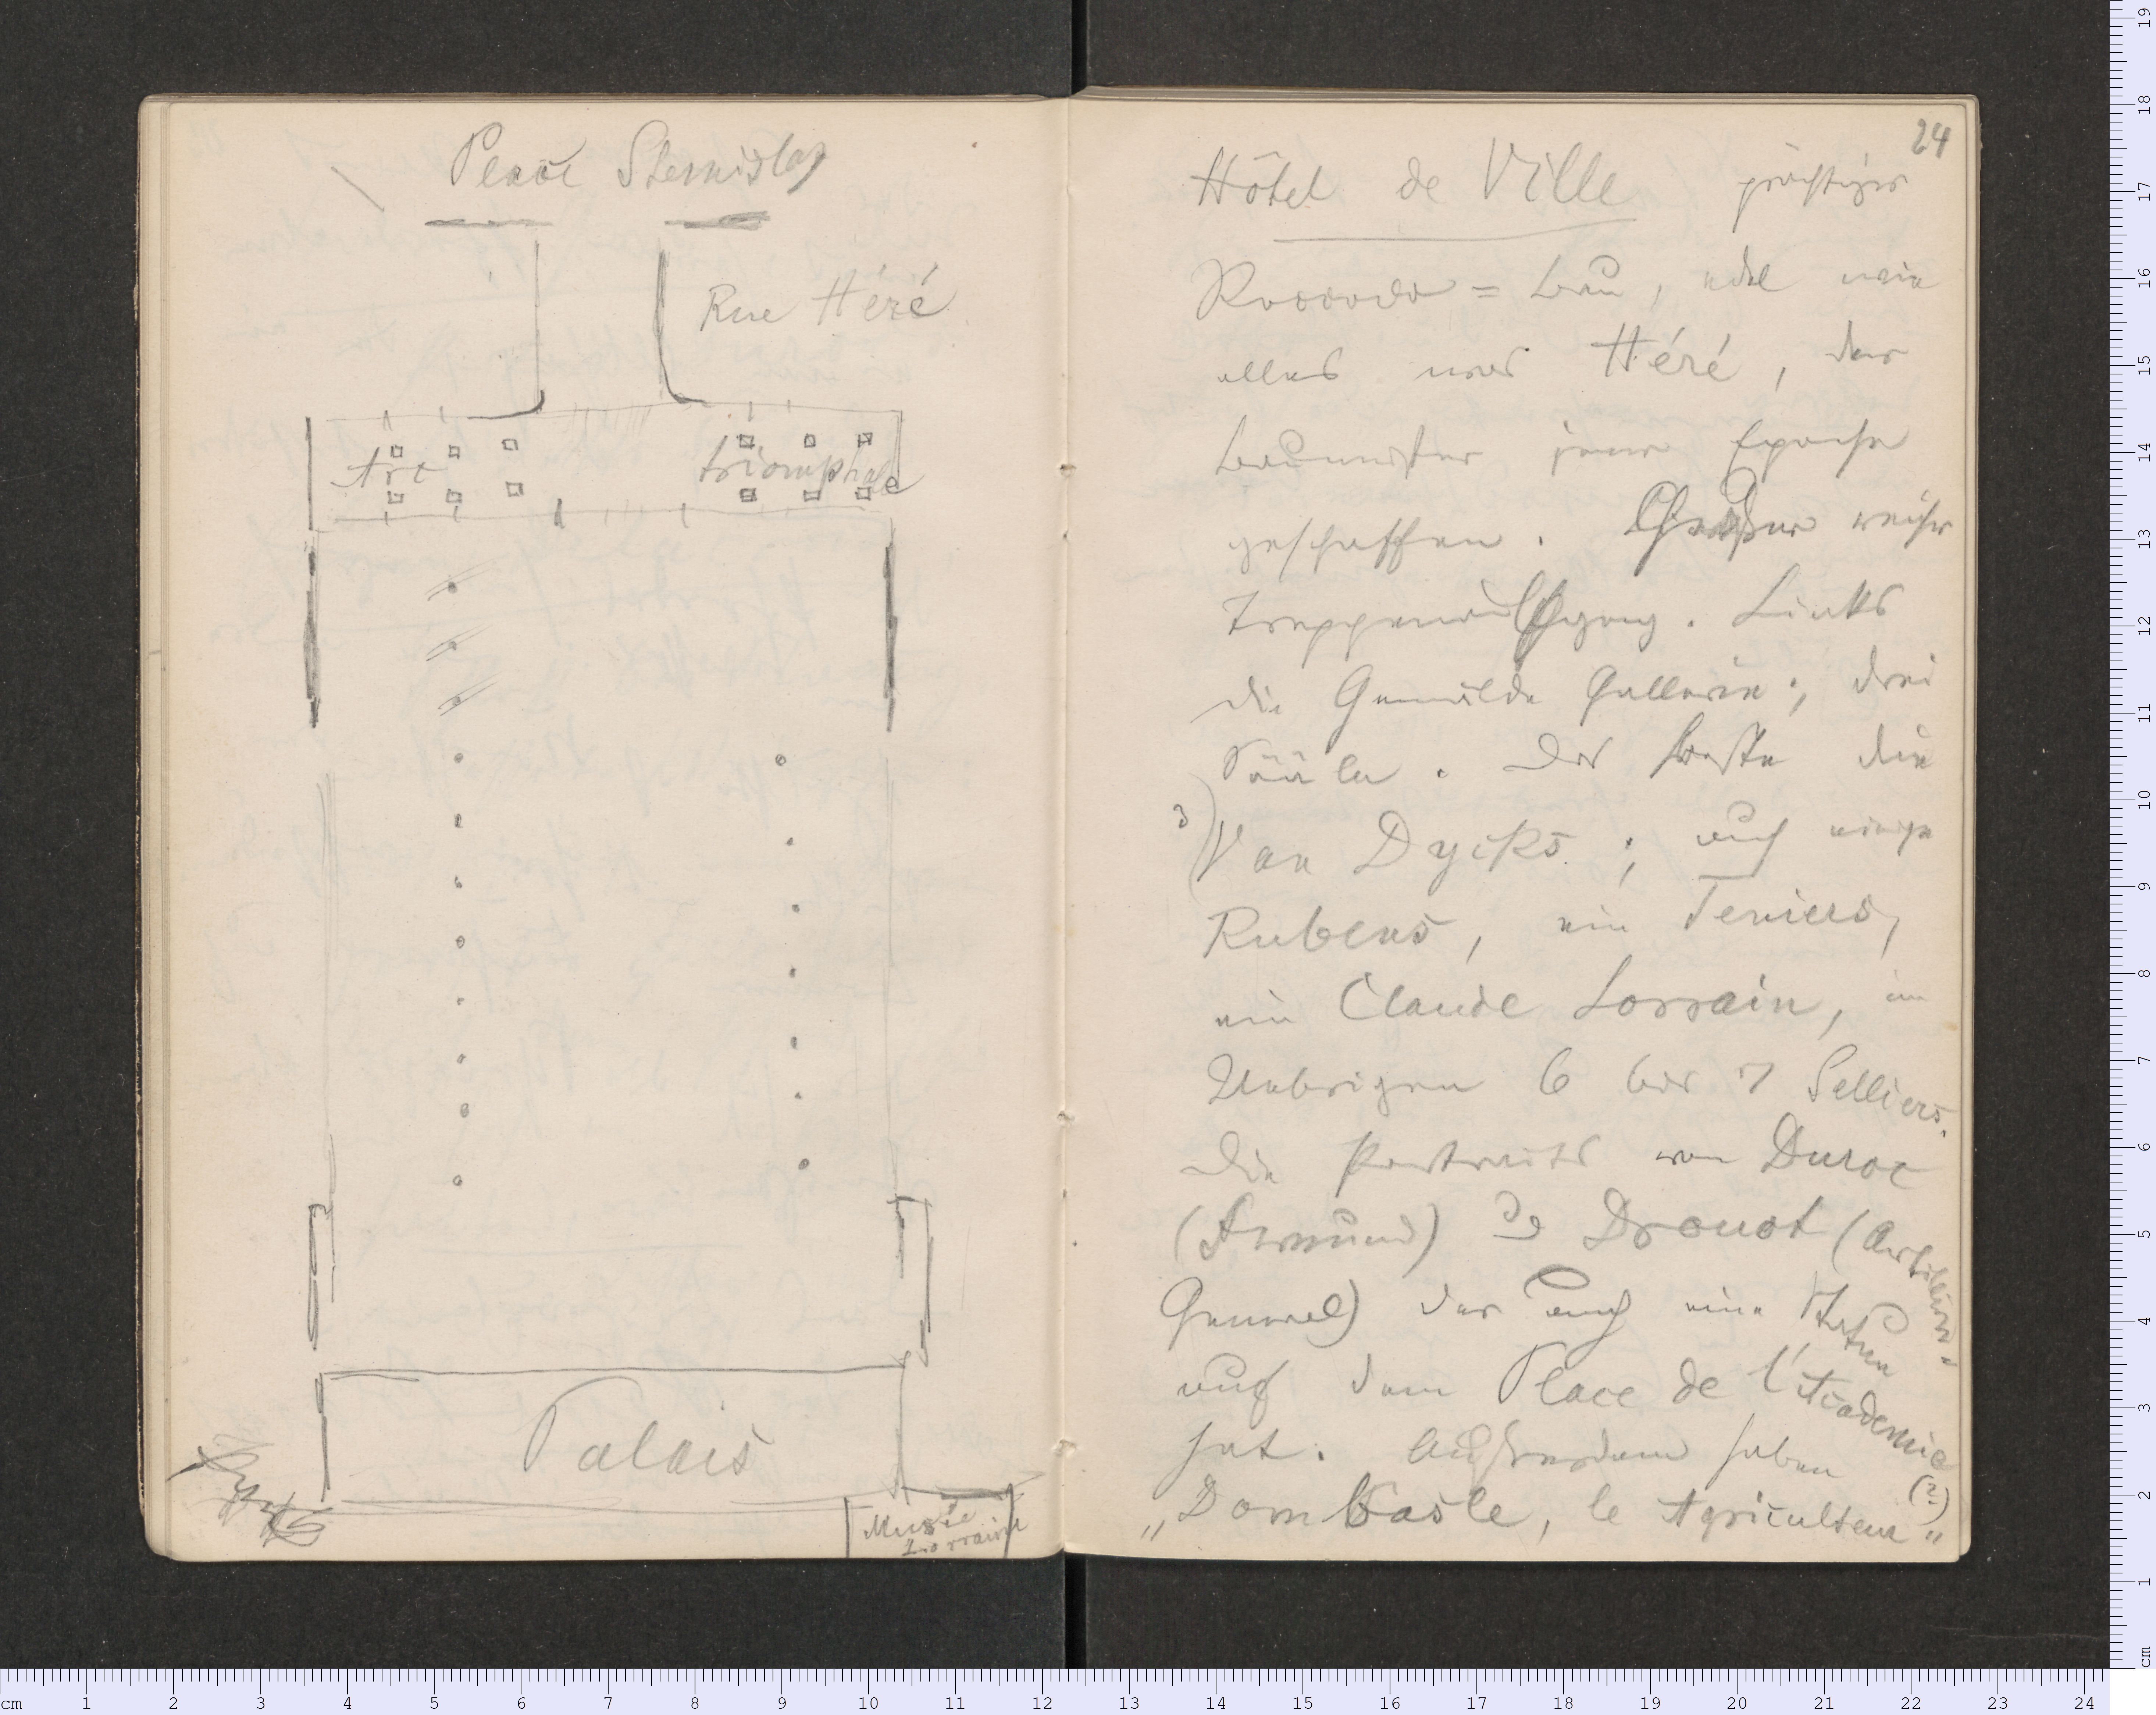 Place Stanislas
Rue Héré
Arc triomphale
Palais
Musée
Lorrain
24
Hôtel de Ville prächtiger
Rococo = Bau, edel wie
alles was Héré, der
Baumeister jener Epoche
geschaffen. Großer reicher
Treppenaufgang. Links
die Gemälde Gallerie; drei
Sääle. Das beste die
3) Van Dycks.; auch einige
Rubens, ein Teniers,
ein Claude Lorrain, im
Uebrigen 6 bis 7 Selliers.
Die Portraits von Duroc
(Freund) u Drouot (Artillerie-
General) der auch eine Statue
auf dem Place de l'Académie
hat. Außerdem haben (?)
„Dombasle, le Agriculteur"